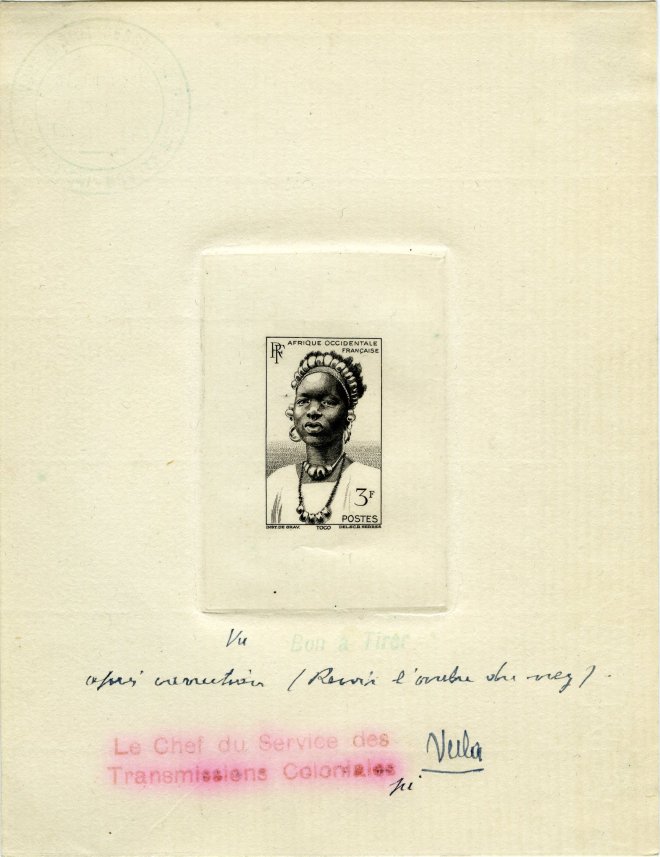 RF AFRIQUE OCCIDENTALE
FRANÇAISE
3F
POSTES
INST. DE GRAV. TOGO DEL. SC. R. SERRES
Vu Bon à Tirer
après correction (Revoir l'ombre du nez).
Le Chef du Service des
Transmissions Coloniales
pi